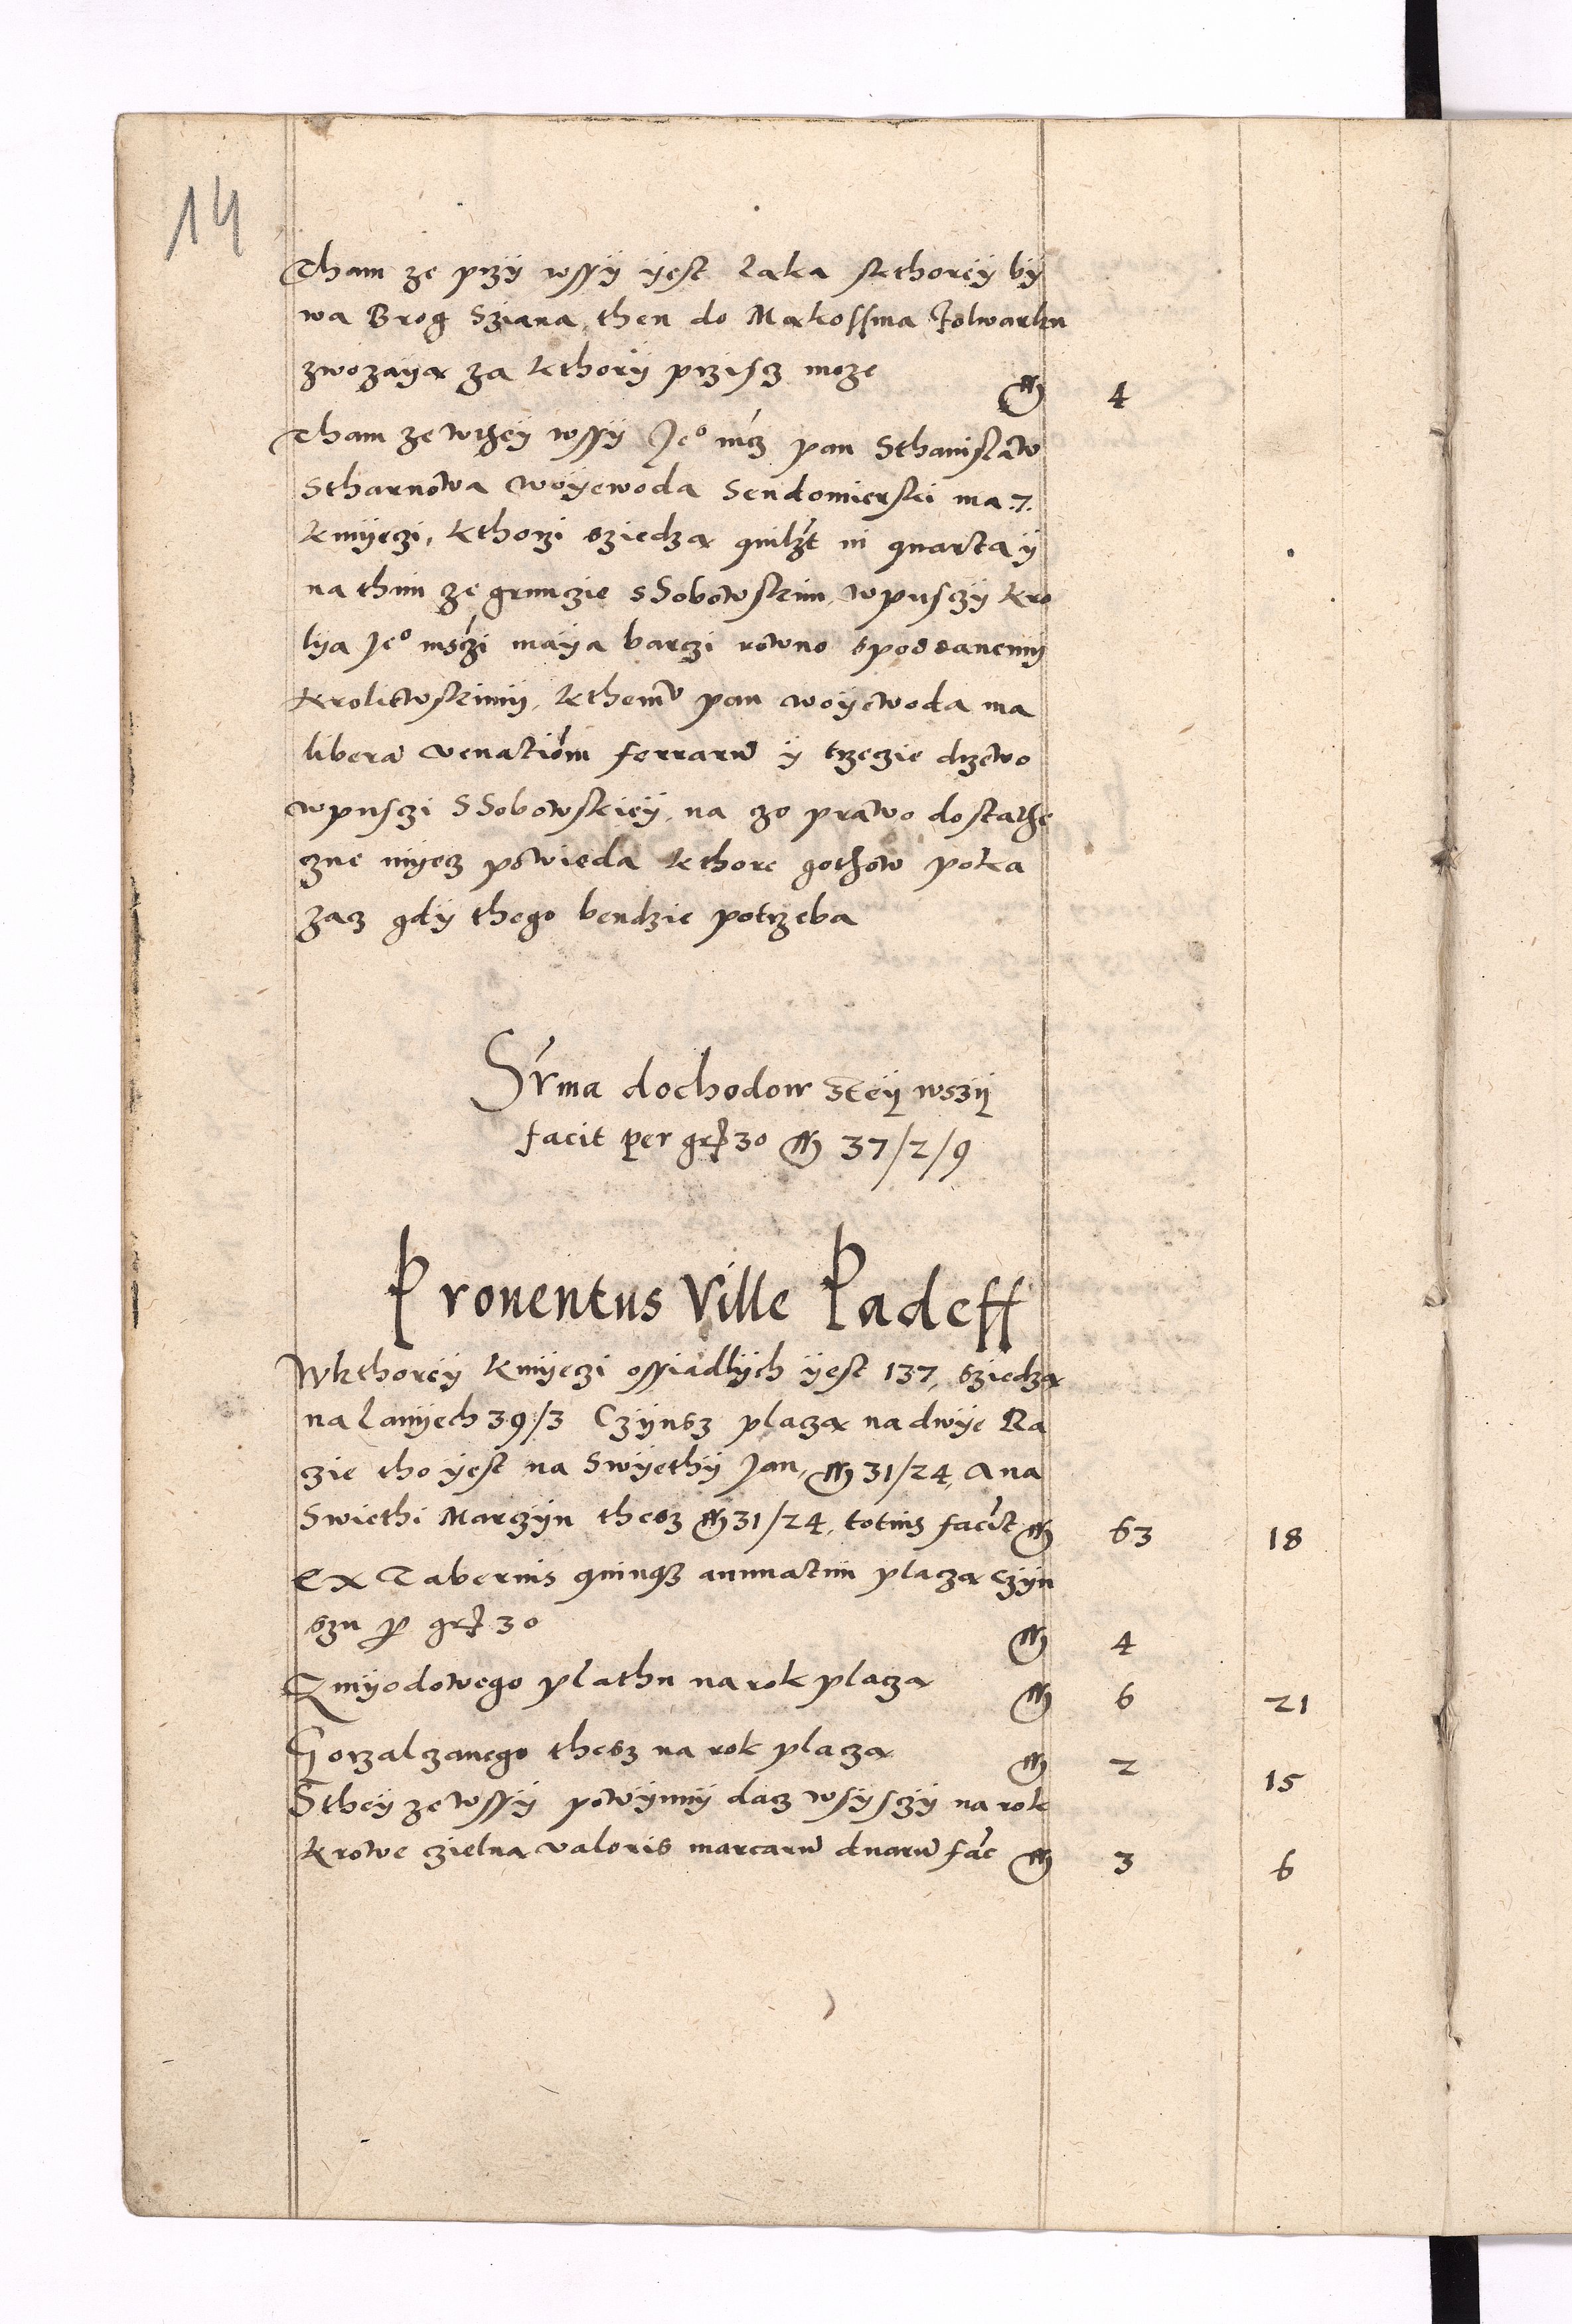 14
Tham ze przÿ wssÿ ÿest laka skthoreÿ bÿ
wa Brog Sziana, then do Makossina folwarku
zwozaÿa za kthorÿ przisz moze m 4
Tham ze wtheÿ wssÿ Je° mcz pan Sthanislaw
Stharnowa woÿewoda Sendomierski ma .7.
kmÿeczi, kthorzi sziedza quilzt in quarta ÿ
na thim ze grunczie sSobowskim, wpusczÿ kro
lya Je° msczi maÿa barczi rowno spoddanemÿ
krolicwskimÿ, kthemv pan woÿewoda ma
libera venationem ferraru ÿ trzeczie drzewo
wpusczi SSobowskieÿ, na czo prawo dostathe
czne mÿecz powieda kthore gothow poka
zacz gdÿ thego bendzie potrzeba
Svma dochodow zteÿ wszÿ
facit per gr 30 m 37/2/9
Prouentus Ville Padeff
Wkthoreÿ kmÿeczi ossiadlÿch ÿest 137, sziedza
na lanÿech 39/3 Czÿnsz placza na dwÿe Ra
zie tho ÿest na Swÿethÿ Jan, m 31/24, A na
Swiethi Marczÿn thesz m 31/24, totius facit m 63 18
Ex Tabernis quinqz annuatim placza czÿn
szu p gr 30 m 4
Zmÿodowego plathu na rok placza m 6 21
Gorzalczanego thesz na rok placza m 2 15
Stheÿ ze wssÿ powÿnnÿ dacz wsÿsczÿ na rok
krowe czielna valoris marcaru duaru fac m 3 6